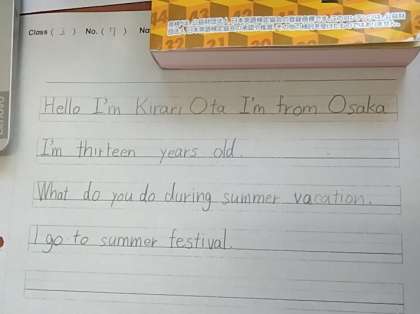 Class ( 3 ) No. ( 7 ) Na
Hello I'm Kirari Ota I'm from Osaka
I'm thirteen years old.
What do you do during summer vacation.
I go to summer festival.